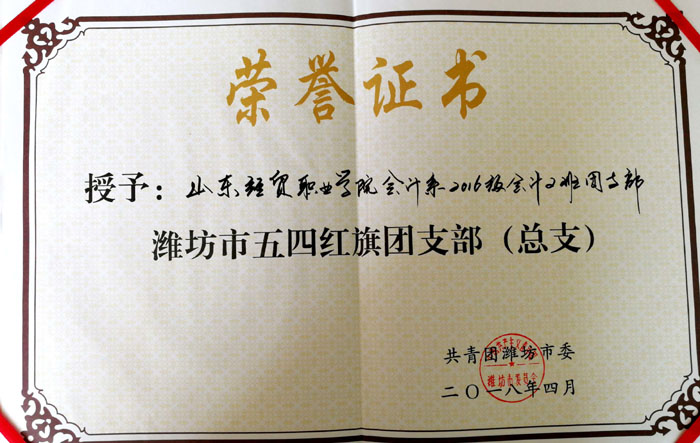 荣誉证书
授予：山东经贸职业学院会计系2016级会计2班团支部
潍坊市五四红旗团支部（总支）
共青团潍坊市委
二〇一八年四月
潍坊市委员会